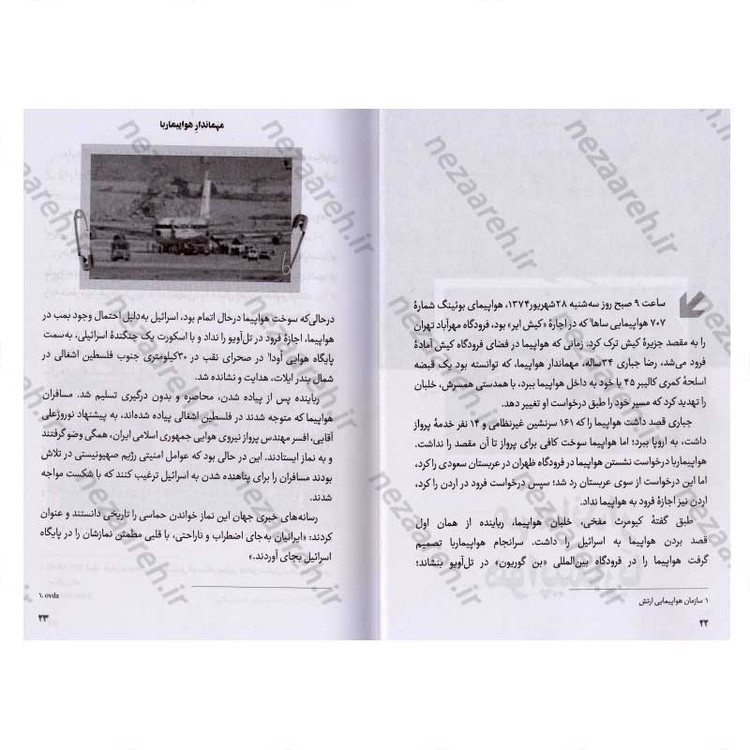 ساعت ۹ صبح روز سه‌شنبه ۲۸شهریور۱۳۷۴، هواپیمای بوئینگ شمارهٔ
۷۰۷ هواپیمایی ساها۱ که در اجارهٔ «کیش ایر» بود، فرودگاه مهرآباد تهران
را به مقصد جزیرهٔ کیش ترک کرد. زمانی که هواپیما در فضای فرودگاه کیش آمادهٔ
فرود می‌شد، رضا جباری ۳۴ساله، مهماندار هواپیما، که توانسته بود یک قبضه
اسلحهٔ کمری کالیبر ۴۵ با خود به داخل هواپیما ببرد، با همدستی همسرش، خلبان
را تهدید کرد که مسیر خود را طبق درخواست او تغییر دهد.
جباری قصد داشت هواپیما را که ۱۶۱ سرنشین غیرنظامی و ۱۴ نفر خدمهٔ پرواز
داشت، به اروپا ببرد؛ اما هواپیما سوخت کافی برای پرواز تا آن مقصد را نداشت.
هواپیماربا درخواست نشستن هواپیما در فرودگاه ظهران در عربستان سعودی را کرد،
اما این درخواست از سوی عربستان رد شد؛ سپس درخواست فرود در اردن را کرد،
اردن نیز اجازهٔ فرود به هواپیما نداد.
طبق گفتهٔ کیومرث مفخی، خلبان هواپیما، رباینده از همان اول
قصد بردن هواپیما به اسرائیل را داشت. سرانجام هواپیماربا تصمیم
گرفت هواپیما را در فرودگاه بین‌المللی «بن گوریون» در تل‌آویو بنشاند؛
۱ سازمان هواپیمایی ارتش
۲۲
مهماندارِ هواپیماربا
درحالی‌که سوخت هواپیما درحال اتمام بود، اسرائیل به‌دلیل احتمال وجود بمب در
هواپیما، اجازهٔ فرود در تل‌آویو را نداد و با اسکورت یک جنگندهٔ اسرائیلی، به‌سمت
پایگاه هوایی اُودا۱ در صحرای نقب در ۳۰کیلومتری جنوب فلسطین اشغالی در
شمال بندر ایلات، هدایت و نشانده شد.
رباینده پس از پیاده شدن، محاصره و بدون درگیری تسلیم شد. مسافران
هواپیما که متوجه شدند در فلسطین اشغالی پیاده شده‌اند، به پیشنهاد نوروزعلی
آقایی، افسر مهندس پرواز نیروی هوایی جمهوری اسلامی ایران، همگی وضو گرفتند
و به نماز ایستادند. این در حالی بود که عوامل امنیتی رژیم صهیونیستی در تلاش
بودند مسافران را برای پناهنده شدن به اسرائیل ترغیب کنند که با شکست مواجه
شدند.
رسانه‌های خبری جهان این نماز خواندن حماسی را تاریخی دانستند و عنوان
کردند: «ایرانیان به‌جای اضطراب و ناراحتی، با قلبی مطمئن نمازشان را در پایگاه
اسرائیل بجای آوردند.»
۱. ovda
۲۳
nezaareh.ir